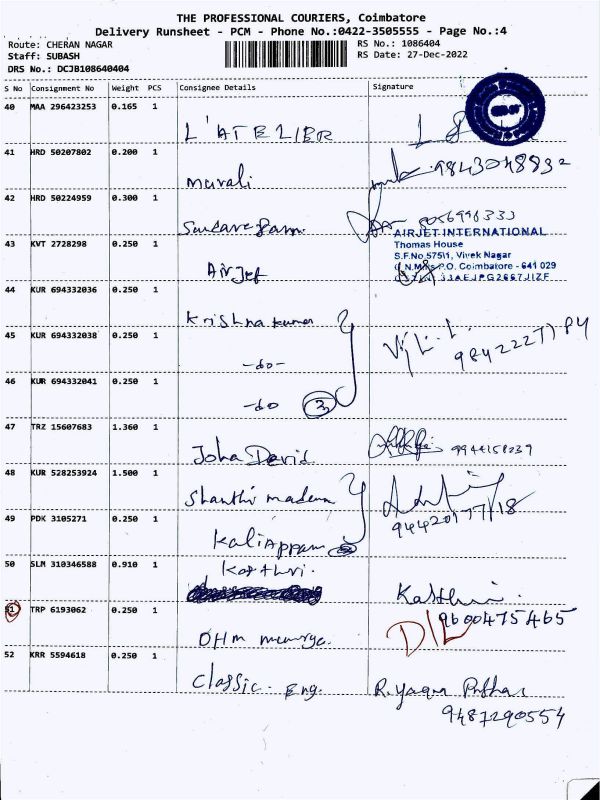 THE PROFESSIONAL COURIERS, Coimbatore
Delivery Runsheet - PCM - Phone No.:0422-3505555 - Page No.:4
Route: CHERAN NAGAR
Staff: SUBASH
DRS No.: DCJB108640404
RS No.: 1086404
RS Date: 27-Dec-2022
S No Consignment No Weight PCS Consignee Details Signature
40 MAA 296423253 0.165 1
L'ATELIER
41 HRD 50207802 0.200 1
murali 9843048832
42 HRD 50224959 0.300 1
8056998333
AIRJET INTERNATIONAL
Thomas House
43 KVT 2728298 0.250 1
S.F.No 575/1, Vivek Nagar
Airjet P.O. Coimbatore - 641 029
33AEJPG2667J1ZF
44 KUR 694332036 0.250 1
Krishna kumar
45 KUR 694332038 0.250 1
-do-
46 KUR 694332041 0.250 1
-do 3
47 TRZ 15607683 1.360 1
John David 9944158239
48 KUR 528253924 1.500 1
Shanthi
49 PDK 3105271 0.250 1
Kaliappam
50 SLM 310346588 0.910 1
Kasthuri
51 TRP 6193062 0.250 1
9600475465
D/L
OHM
52 KRR 5594618 0.250 1
Classic. Eng.
9487290554